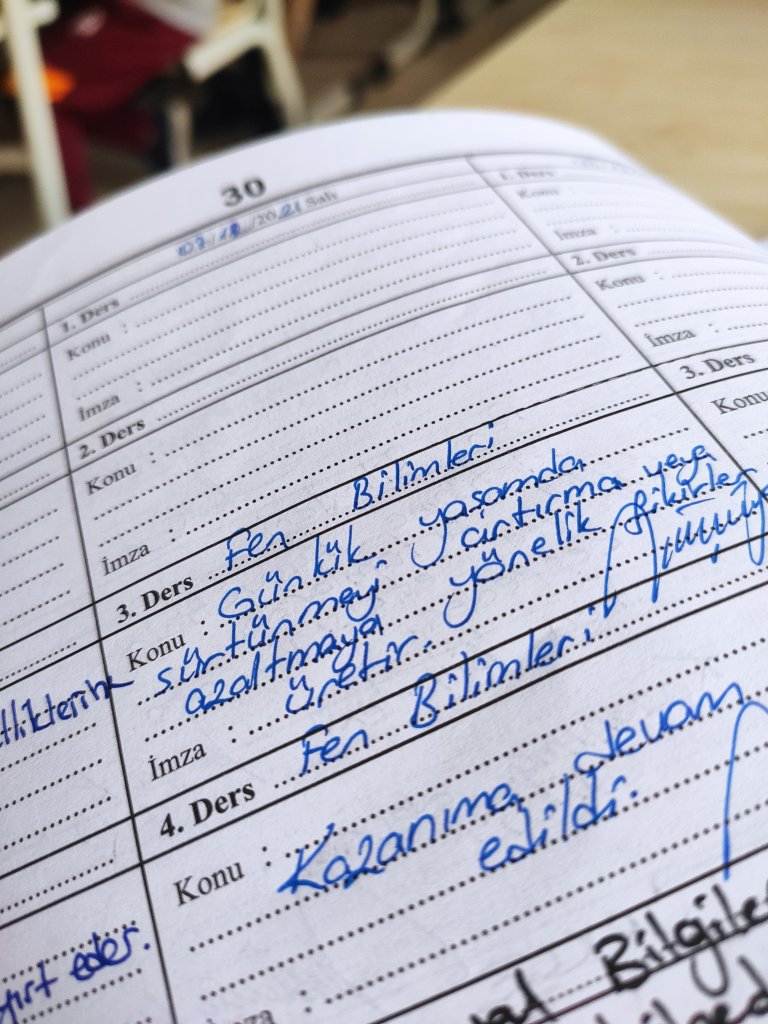 30
07/12/2021 Salı
1. Ders
Konu :
İmza :
2. Ders
Konu :
İmza :
3. Ders Fen Bilimleri
Konu : Günlük yaşamda
sürtünmeyi artırma veya
azaltmaya yönelik fikirler
üretir.
İmza :
4. Ders Fen Bilimleri
Konu : Kazanıma devam
edildi.
İmza :
Bilgiler
1. Ders
Konu :
İmza :
2. Ders
Konu :
İmza :
3. Ders
Konu
eder.